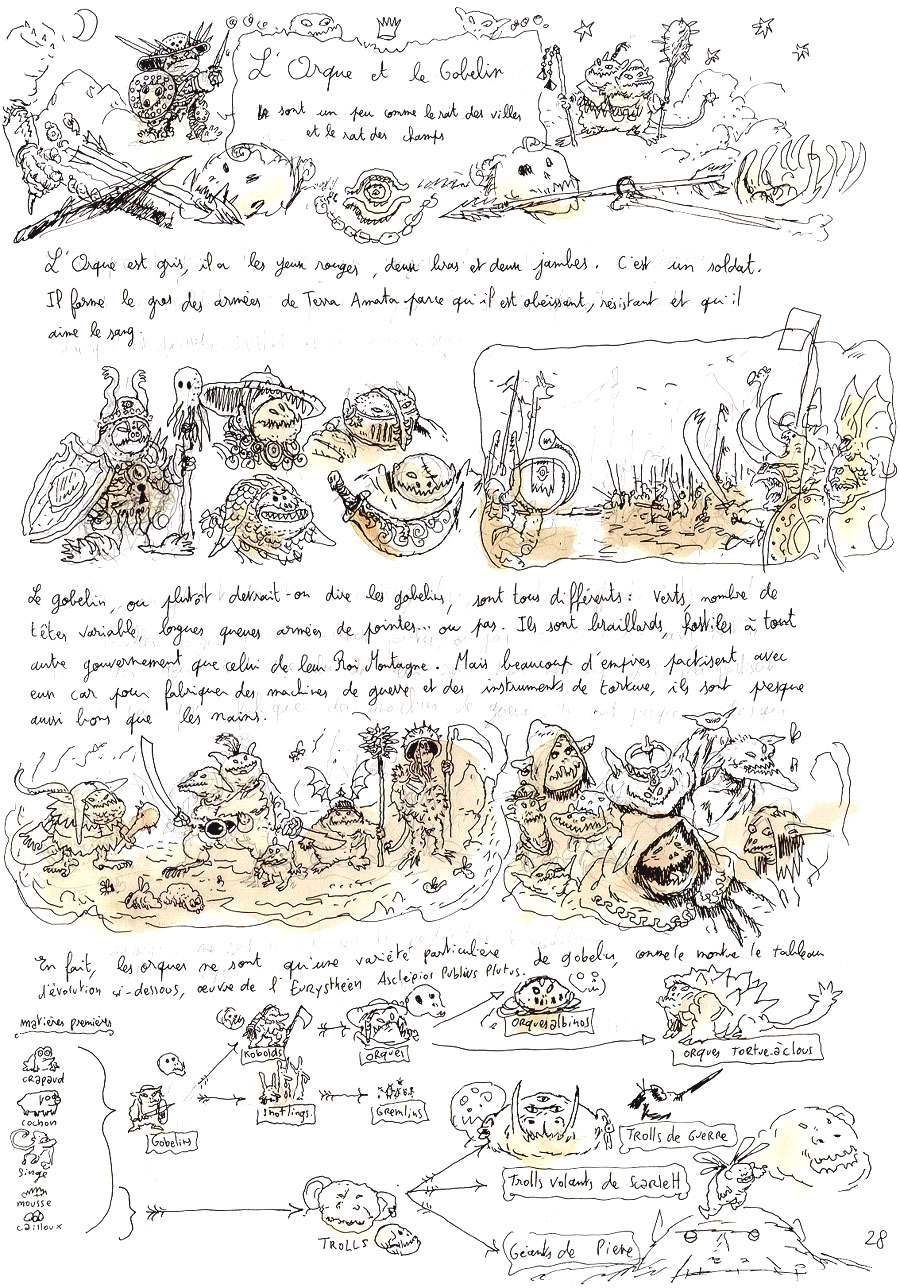 L'Orque et le Gobelin
sont un peu comme le rat des villes
et le rat des champs
L'Orque est gris, il a les yeux rouges, deux bras et deux jambes. C'est un soldat.
Il forme le gros des armées de Terra Amata parce qu'il est obéissant, résistant et qu'il
aime le sang.
Le gobelin, ou plutôt devrait-on dire les gobelins, sont tous différents : verts, nombre de
têtes variable, longues queues armées de pointes... ou pas. Ils sont braillards, hostiles à tout
autre gouvernement que celui de leur Roi Montagne. Mais beaucoup d'empires pactisent avec
eux car pour fabriquer des machines de guerre et des instruments de torture, ils sont presque
aussi bons que les nains.
En fait, les orques ne sont qu'une variété particulière de gobelin, comme le montre le tableau
d'évolution ci-dessous, œuvre de l'Eurysthéen Asclépios Publius Plutus.
matières premières
crapaud
cochon
singe
mousse
cailloux
Gobelins
Kobolds
Orques
Orques albinos
Orques Tortue-à-clous
Snotlings
Gremlins
Trolls de Guerre
Trolls volants de Scarlett
TROLLS
Géants de Pierre
28